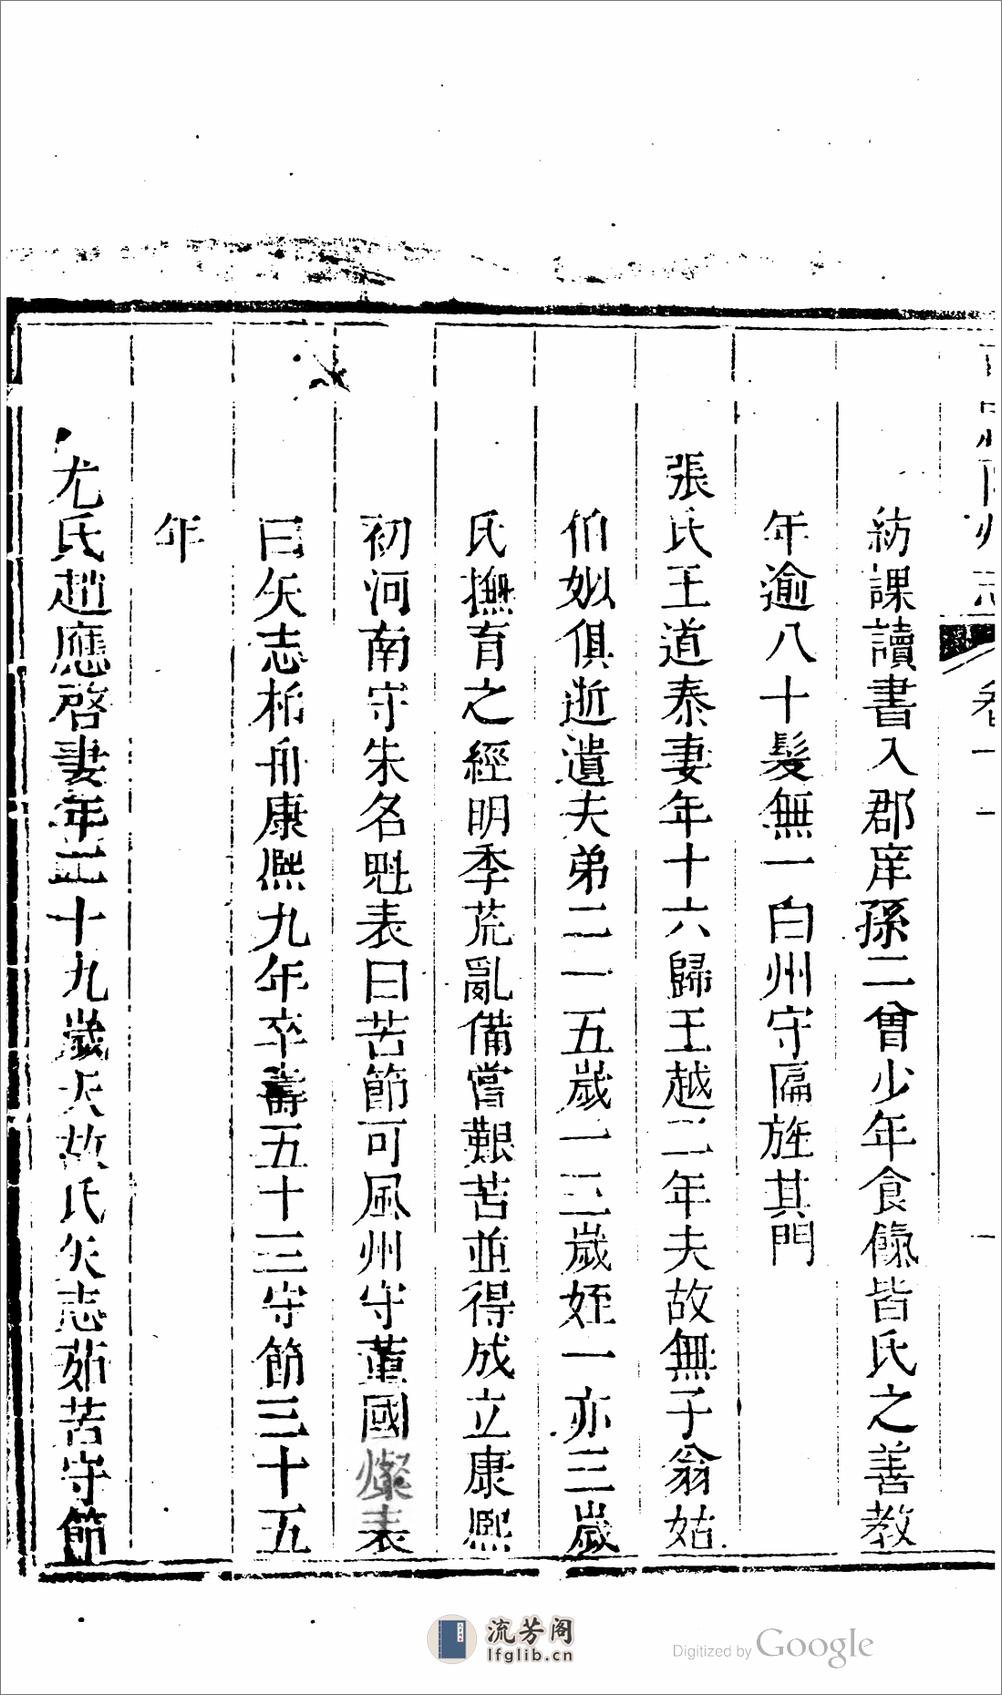 卷十一
紡課讀書入郡庠孫二曾少年食餼皆氏之善教
年逾八十髮無一白州守匾旌其門
張氏王道泰妻年十六歸王越二年夫故無子翁姑
伯姒俱逝遺夫弟二一五歲一三歲姪一亦三歲
氏撫育之經明季荒亂備嘗艱苦並得成立康熙
初河南守朱名魁表曰苦節可風州守董國燦表
曰矢志栢舟康熙九年卒壽五十三守節三十五
年
尤氏趙應啓妻年二十九歲夫故氏矢志茹苦守節
流芳阁
lfglib.cn
Digitized by Google